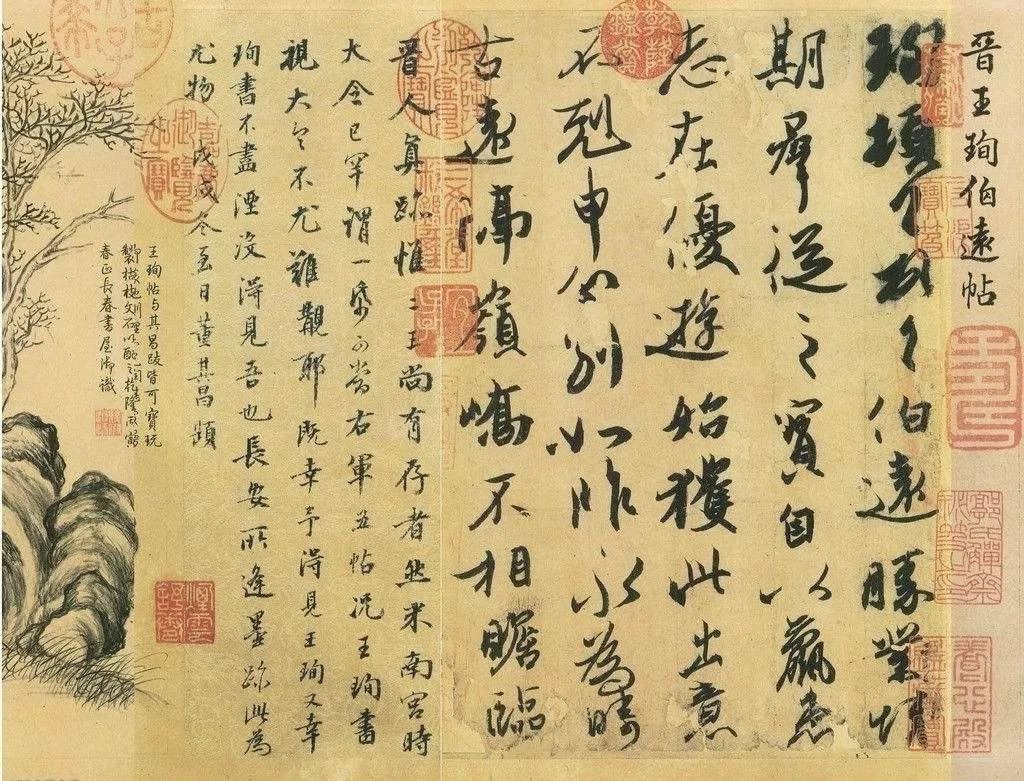 晉王珣伯遠帖
珣頓首頓首伯遠勝業情
期群從之寶自以羸患
志在優遊始獲此出意
不剋申分別如昨永為疇
古遠隔嶺嶠不相瞻臨
晉人真跡惟二王尚有存者然米南宮時
大令已罕謂一紙可當右軍五帖況王珣書
視大令不尤難覯耶既幸予得見王珣又幸
珣書不盡湮沒得見吾也長安所逢墨跡此為
尤物 戊戌冬至日董其昌題
王珣帖与其昌跋皆可寶玩
以配之乾隆丙寅
春正長春書屋御識